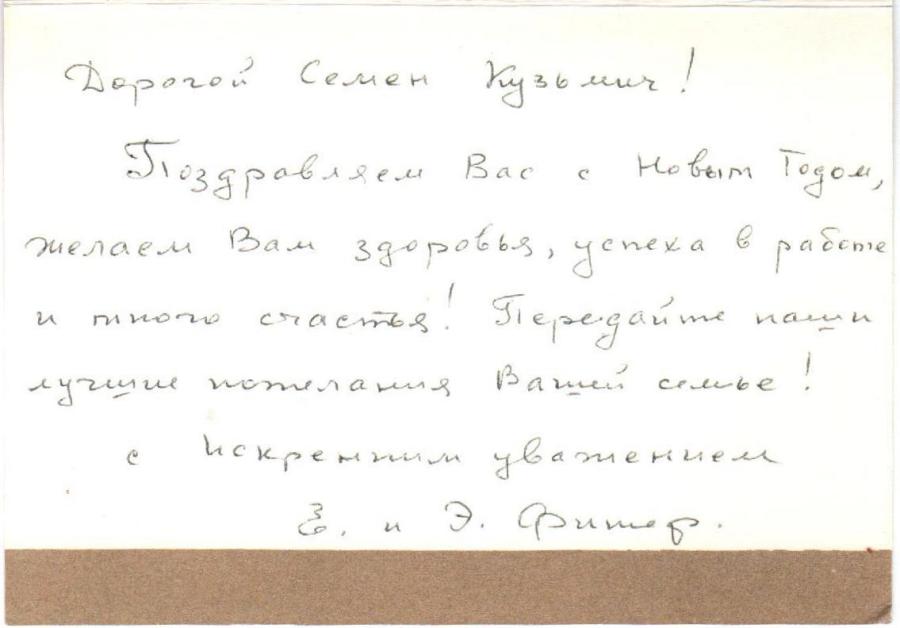 Дорогой Семен Кузьмич!
Поздравляем Вас с Новым Годом,
желаем Вам здоровья, успеха в работе
и много счастья! Передайте наши
лучшие пожелания Вашей семье!
с искренним уважением
Е. и Э. Фишер.